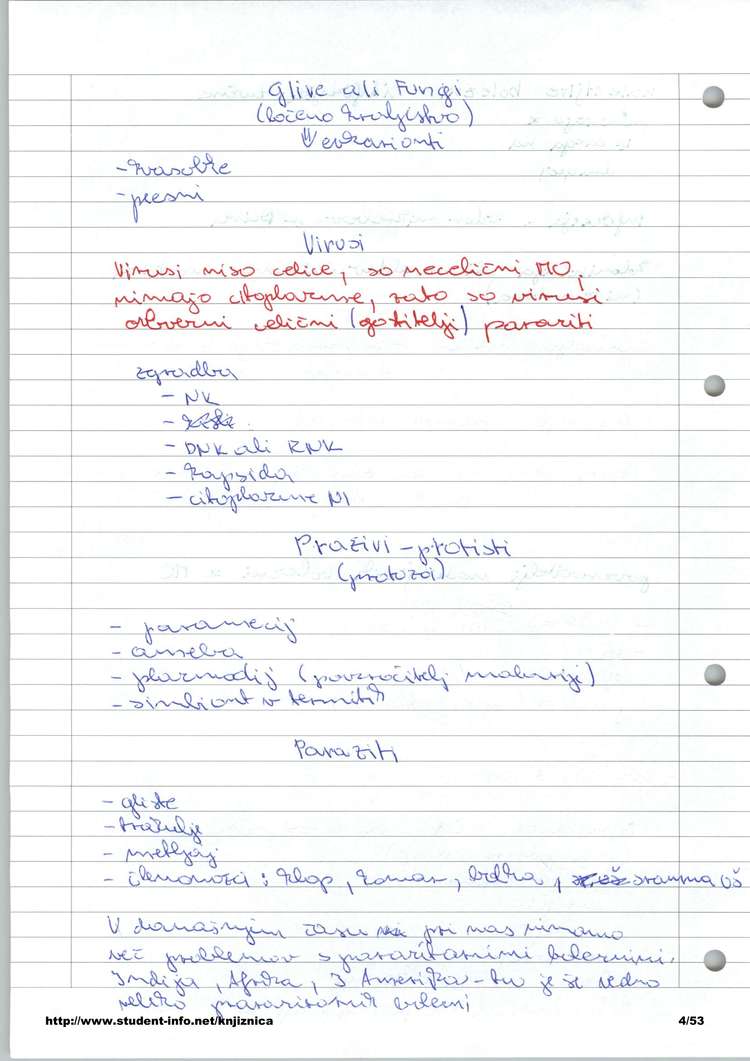 Glive ali Fungi
(ločeno kraljestvo)
⇓ evkarionti
- kvasovke
- plesni
Virusi
Virusi niso celice, so necelični MO,
nimajo citoplazme, zato so virusi
obvezni celični (gostitelji) paraziti
zgradba
- NK
-
- DNK ali RNK
- kapsida
- citoplazme NI
Praživi - protisti
(protozoi)
- paramecij
- ameba
- plazmodij (povzročitelj malarije)
- simbiont v termitih
Paraziti
- gliste
- trakulje
- metljaj
- členonožci : klop, komar, bolha,
V današnjem času pri nas nimamo
več problemov s parazitarnimi boleznimi.
Indija, Afrika, J Amerika - tu je še vedno
veliko parazitskih bolezni
http://www.student-info.net/knjiznica
4/53